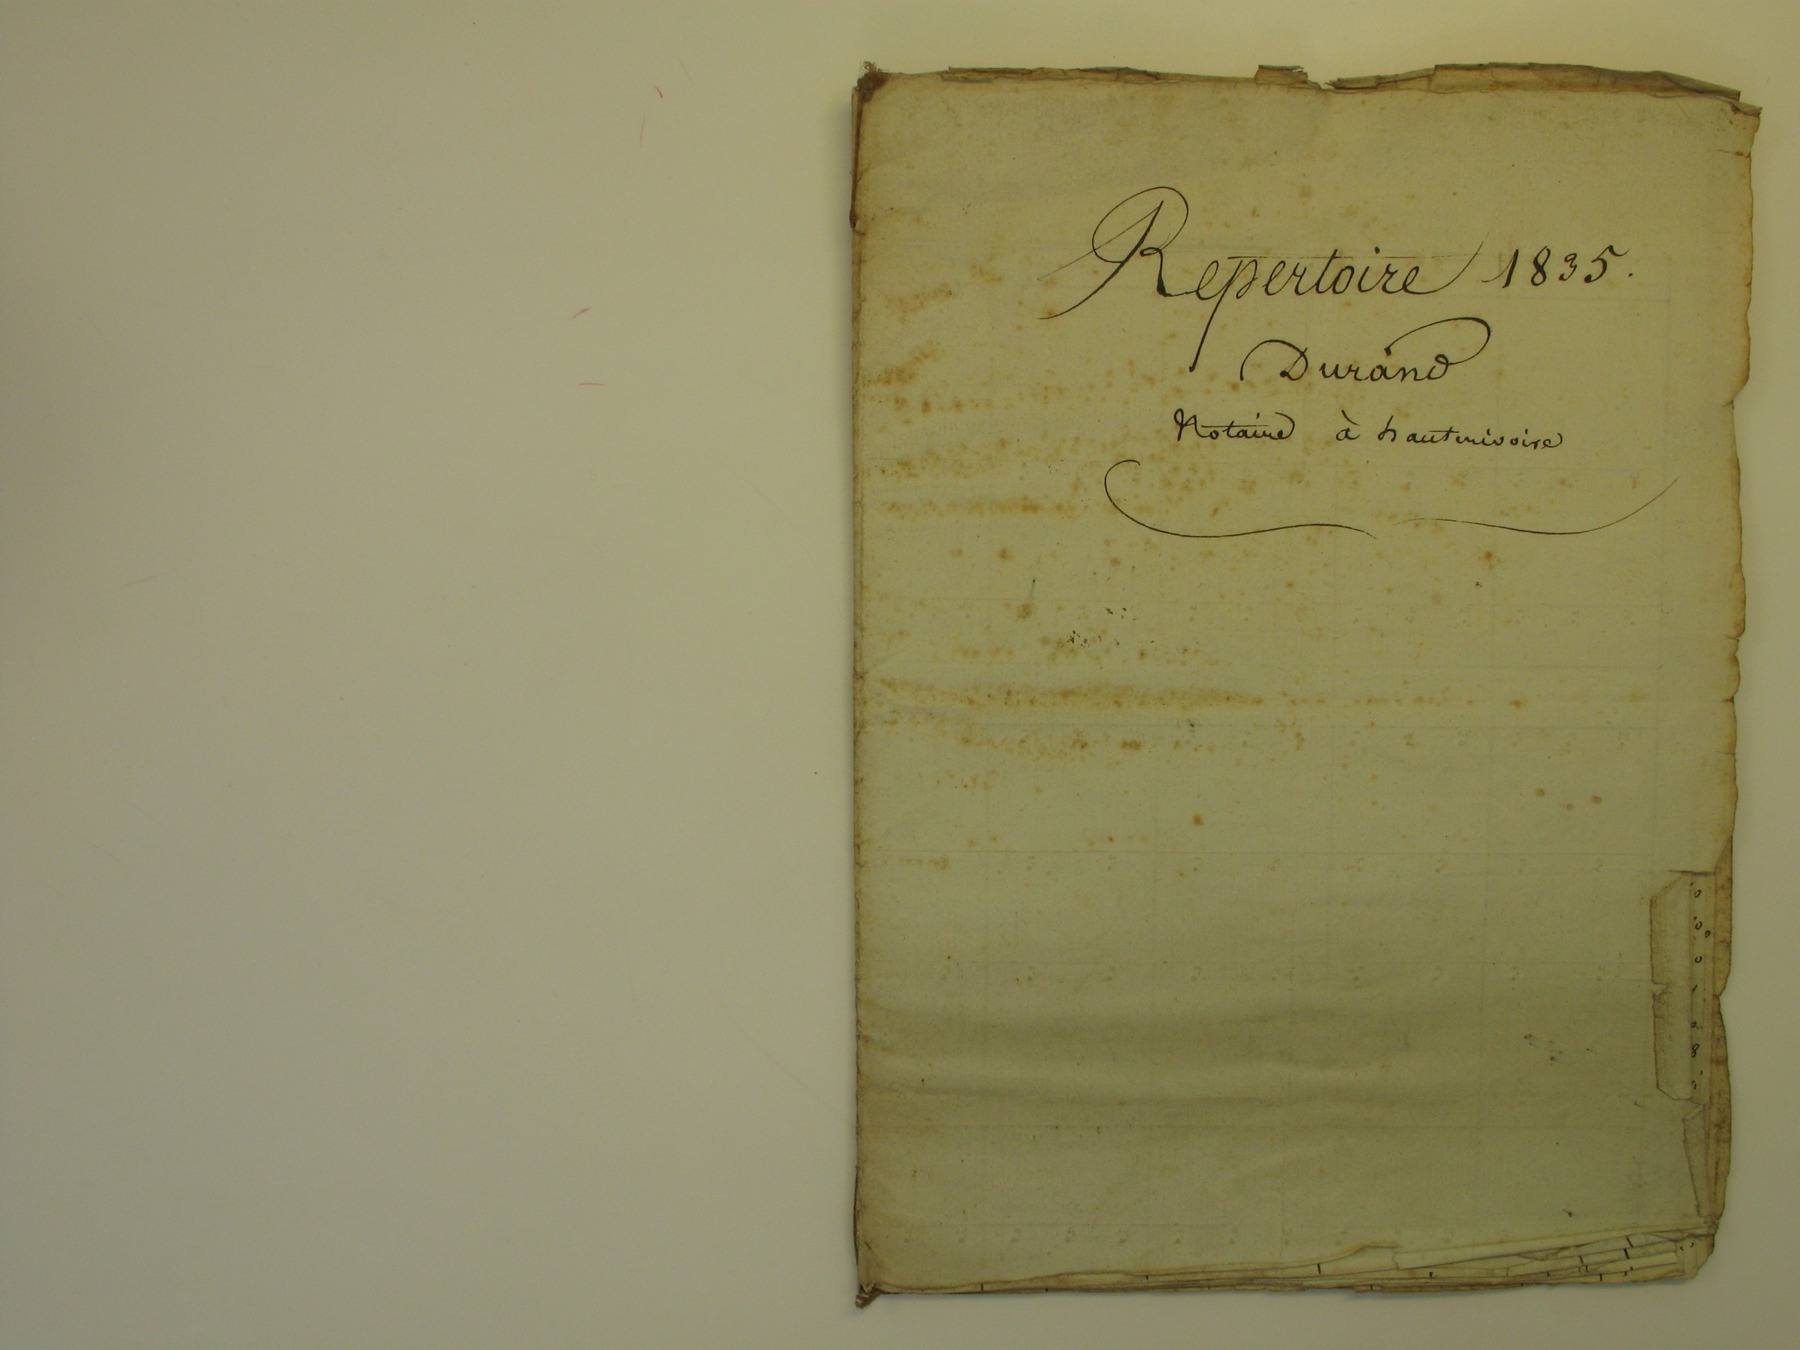 Repertoire 1835.
Durand
Notaire à hauterivoire